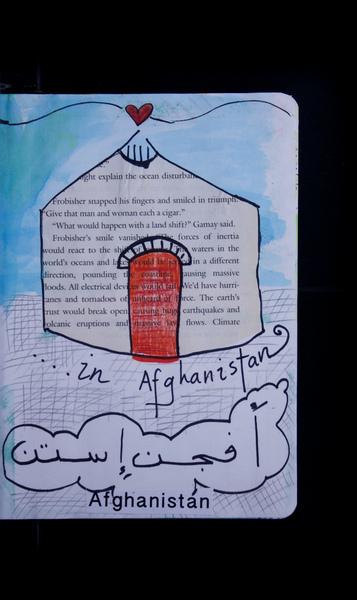 ght explain the ocean disturban
Frobisher snapped his fingers and smiled in triumph.
“Give that man and woman each a cigar.”
“What would happen with a land shift?” Gamay said.
Frobisher's smile vanished. “The forces of inertia
would react to the waters in the
world's oceans and would be in a different
direction, pounding the causing massive
loods. All electrical devices would fail. We'd have hurri-
anes and tornadoes of unheard-of force. The earth's
rust would break open, causing huge earthquakes and
olcanic eruptions and massive lava flows. Climate
.....in Afghanistan
أ فجن إستن
Afghanistan